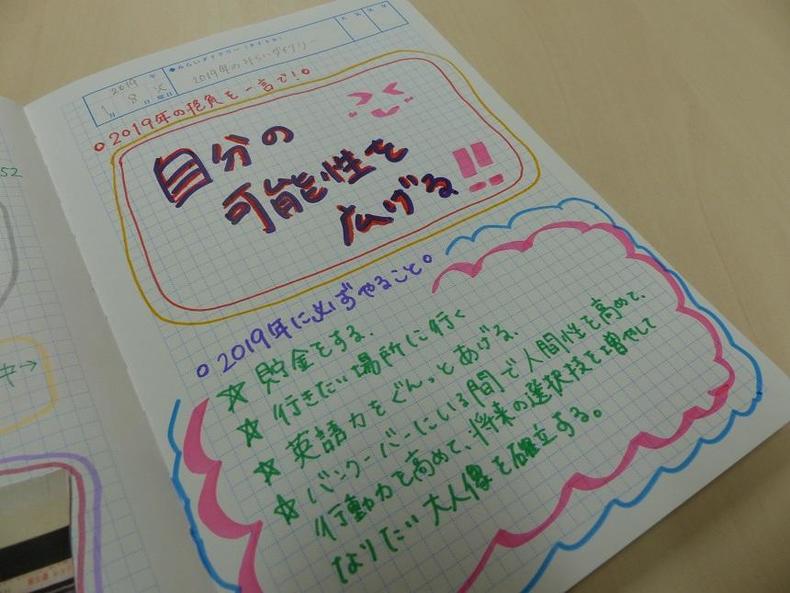 2019年
1月8日火曜日
●みらいダイアリー(タイトル)
2019年のみらいダイアリー
2019年の抱負を一言で!
自分の
可能性を
広げる!!
2019年に必ずやること
☆貯金をする.
☆行きたい場所に行く
☆英語力をぐんっとあげる.
☆バンクーバーにいる間で人間性を高めて、
行動力を高めて、将来の選択技を増やして
なりたい大人像を確立する。
52
キ→